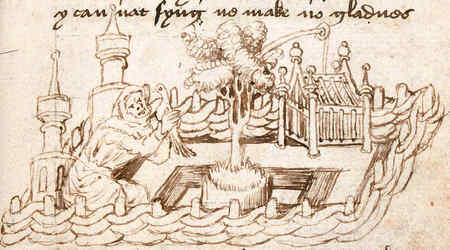 y can nat syng ne make no gladnes